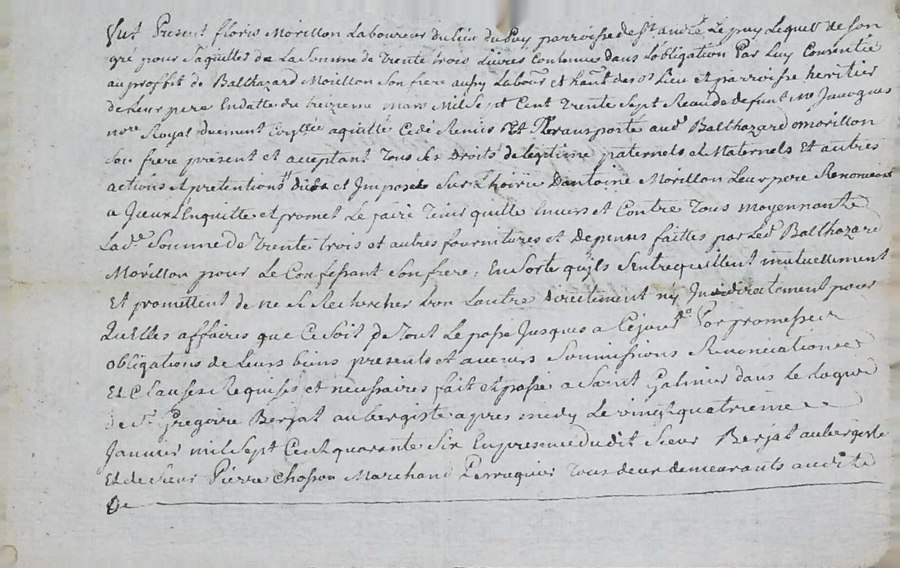 fut Present floris Morillon Laboureur du Lieu du Puy parroisse de St andré Le puy Lequel de son
gré pour S'aquitter de La Somme de trente trois Livres Contenue dans L'obligation Par Luy Consentie
au proffit de Balthazard Morillon Son frere aussy Labour et hant des. Lieu et parroisse heritier
de Leur pere En datte du treizeme mars Mil Sept Cent trente Sept Receue de defunt me Jacques
nore Royal duement a quitté Cedé Remis Et Transporte aud Balthazard morillon
Son frere present et acceptant Tous ses Droits de Legitime paternels et Maternels Et autres
actions et pretentions et Imposes Sur L'hoirie D'antoine Morillon Leur pere Renonceant
a Jceux L'Enquitte et promet Le faire Tenir quitte Envers et Contre Tous moyennant
Lade Somme de trente trois et autres fournitures et depenses faittes par Led Balthazard
Morillon pour Le Confessant Son frere, En Sorte qu'ils S'entrequittent mutuellement
Et promettent de ne se Rechercher L'un Lautre directement ny Jndirectement pour
Quelles affaires que Ce Soit de Tout Le passé Jusques a Cejourd'. Par promesses
obligations de Leurs biens presents et avenirs Soumissions Renonciations
Et Clauses Requises et necessaires fait et passé a Saint Galmier dans le Logis
de Sr. Gregoire Berjat aubergiste apres midy Le vingt quatrieme
Janvier mil Sept Cent quarante Six En presence dudit Sieur Berjat aubergiste
Et de Sieur Pierre Chosson Marchand Perruquier Tous deux demeurants audit